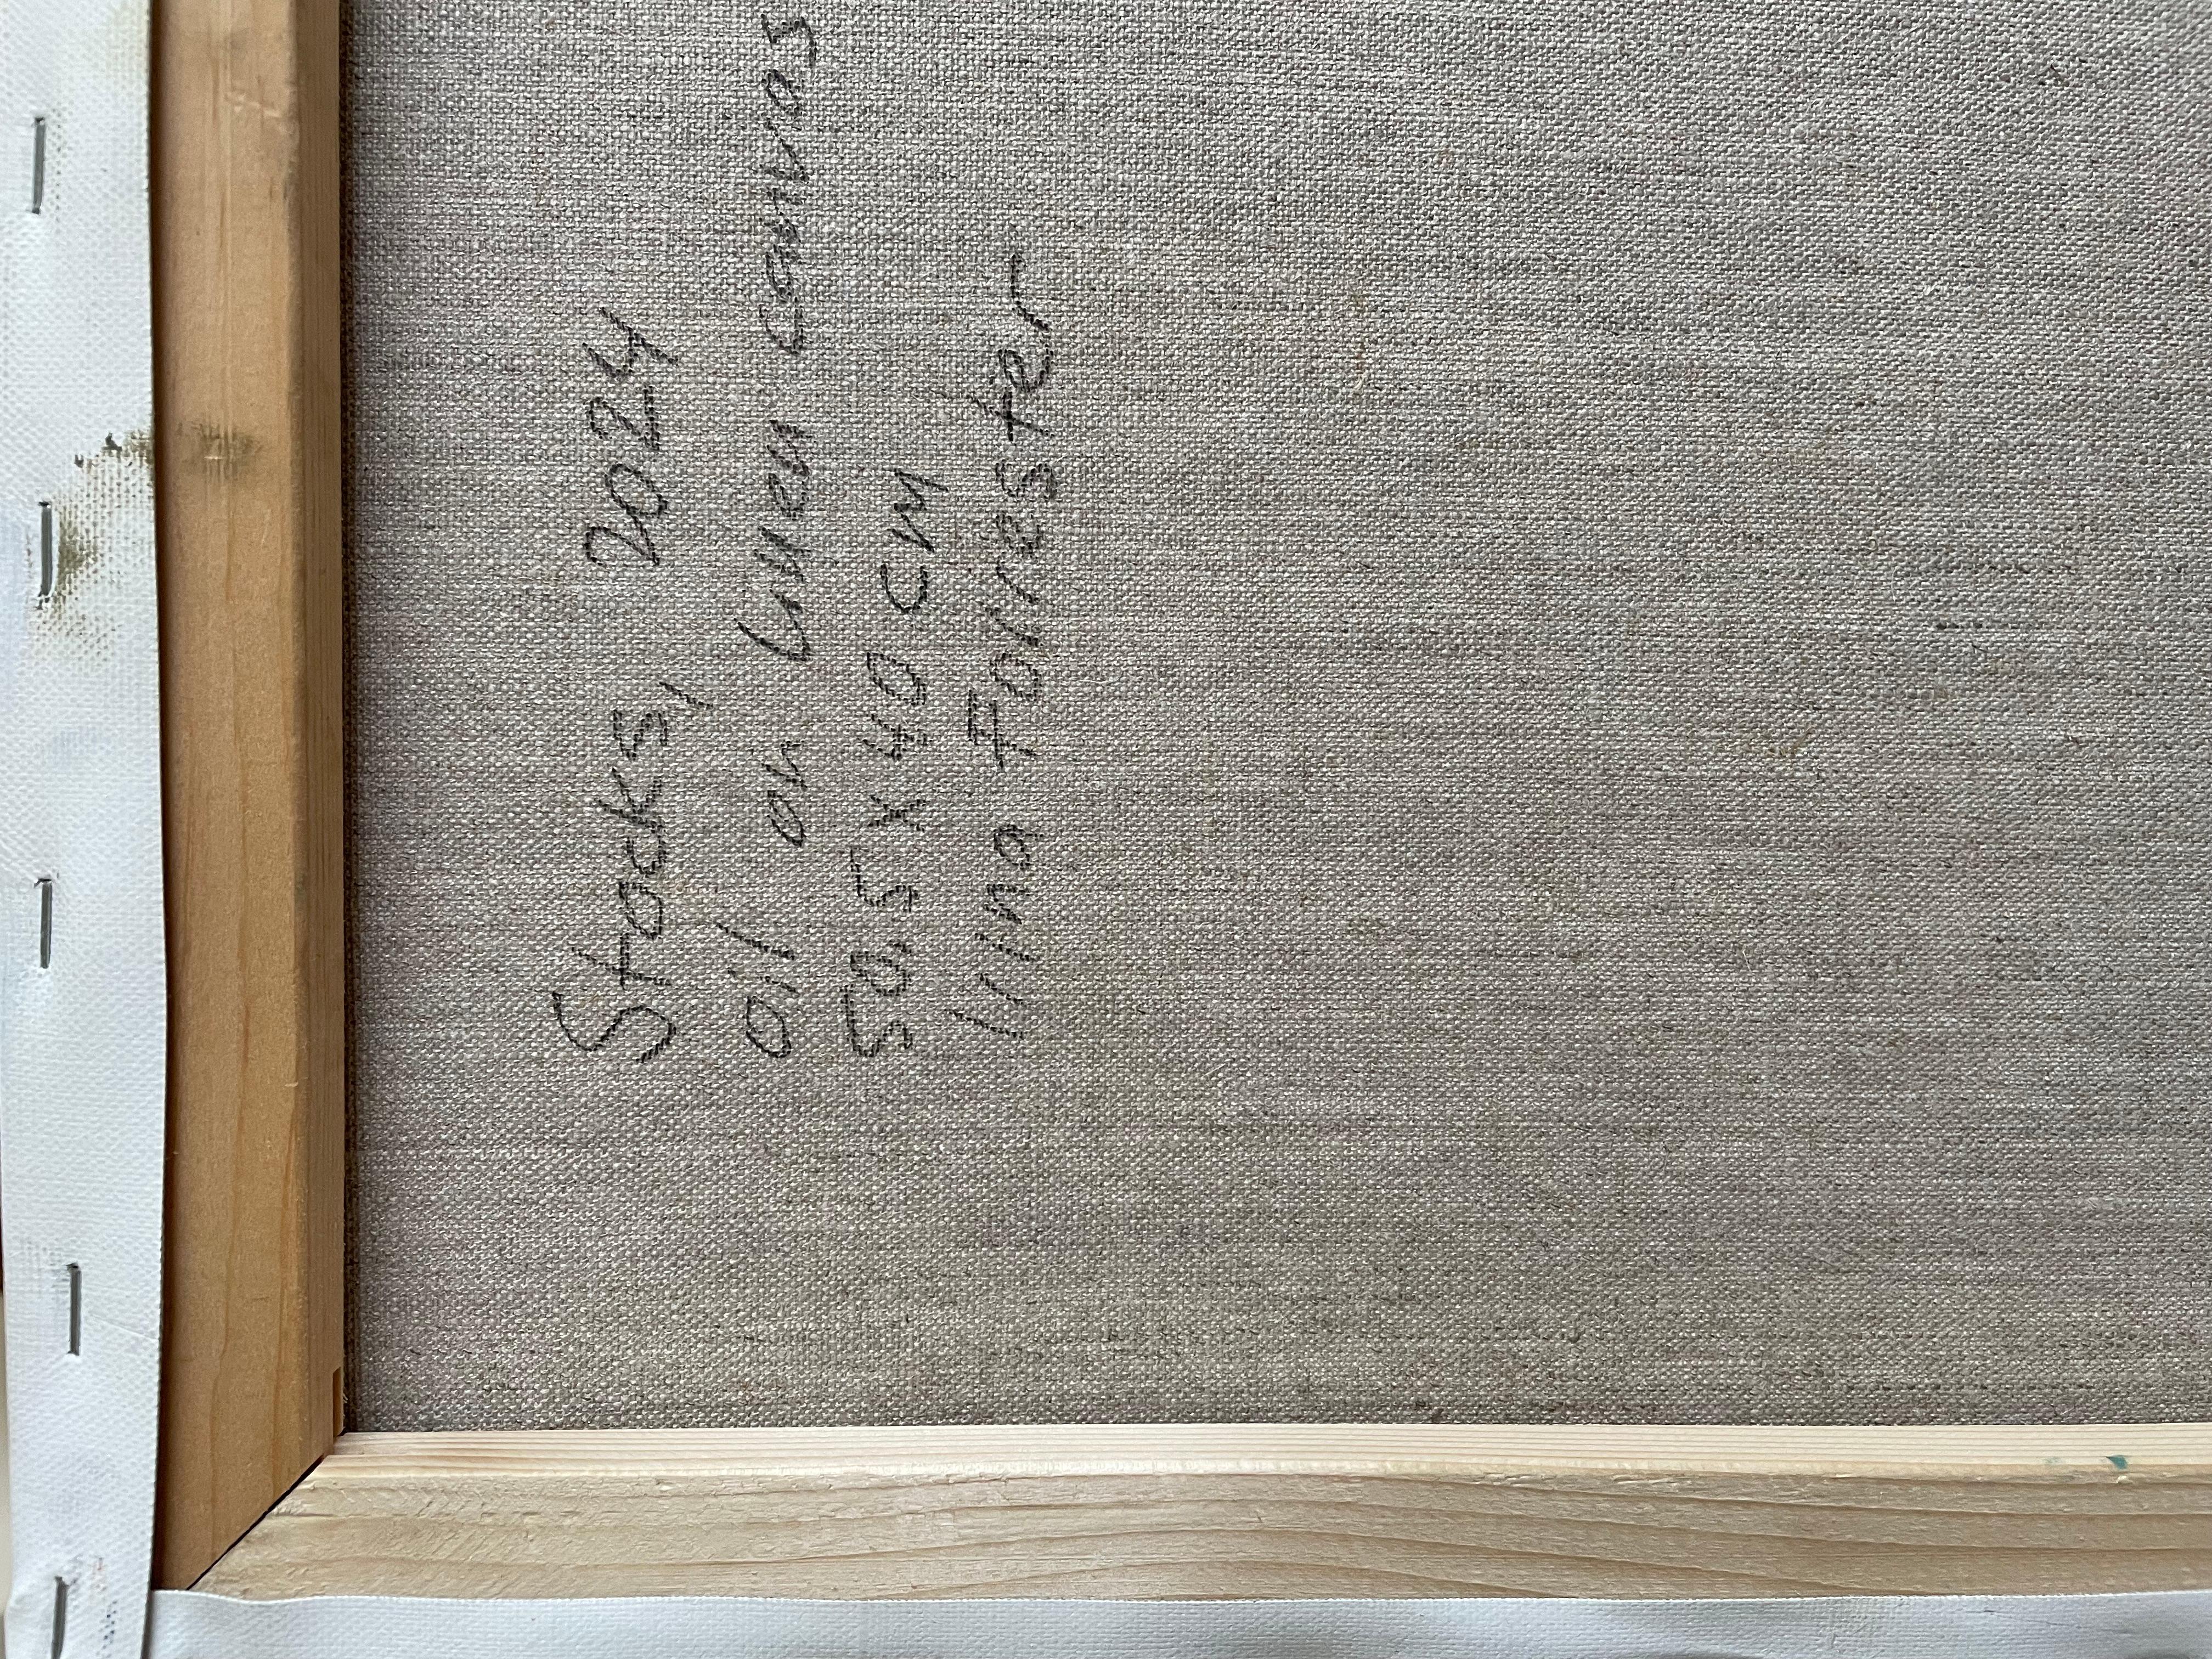 Stocks, 2024
oil on linen canvas
50,5 x 40 cm
Irina Forrester